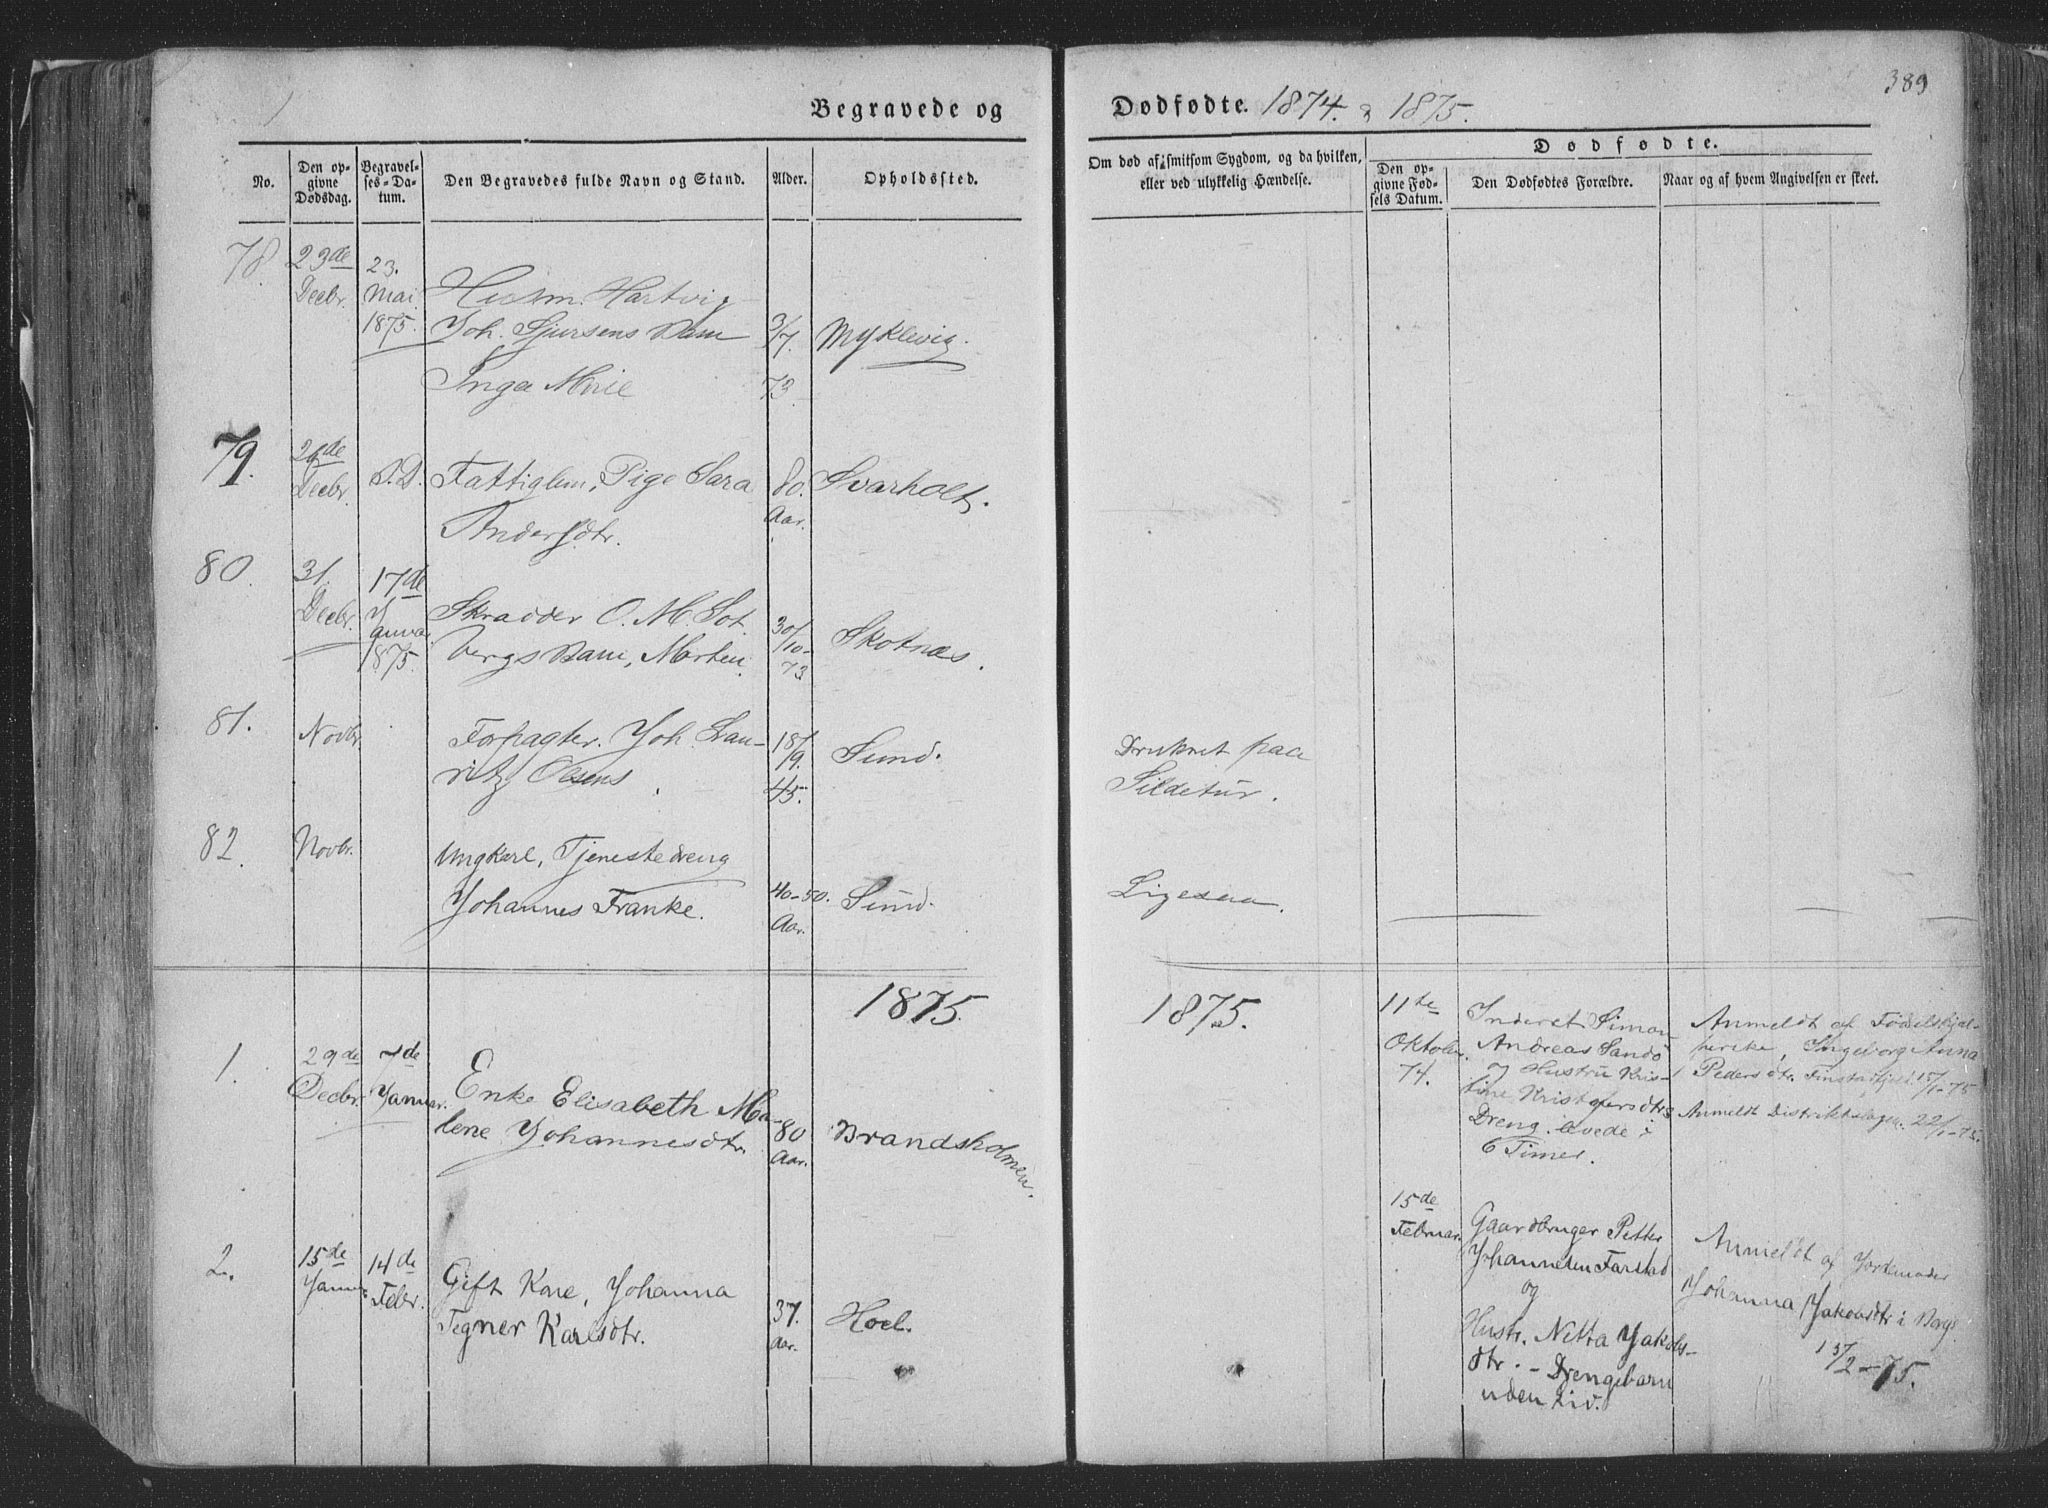 389
Begravede og
Dødfødte. 1874. & 1875.
No.
Den op-
givne
Dødsdag.
Begravel-
ses-Da-
tum.
Den Begravedes fulde Navn og Stand.
Alder.
Opholdssted.
Om død af smitsom Sygdom, og da hvilken,
eller ved ulykkelig Hændelse.
Dødfødte.
Den op-
givne Fød-
sels Datum.
Den Dødfødtes Forældre.
Naar og af hvem Angivelsen er skeet.
78.
23de
Decbr.
23.
Mai
1875.
Husm. Hartvig
Joh. Sjursens Barn
Inga Marie
3/7.
73.
Myklevig.
79.
Decbr.
S.D.
Fattiglem, Pige Sara
Andersdtr.
80.
Aar.
Svarholt.
80.
31.
Decbr.
17de
Januar
1875.
Skrædder O. M. Sot
bergs Barn, Morten.
30/10-
73
Skotnæs.
81.
Novbr.
Forpagter. Joh. Lau-
ritz Olsens
18/9.
45.
Sund.
Druknet paa
Sildetur.
82.
Novbr.
Ungkarl, Tjenestedreng
Johannes Franke.
40-50.
Aar.
Sund.
Ligesaa.
1875.
1875.
1.
29de
Decbr.
7de
Januar.
Enke Elisabeth Ma-
lene Johannesdtr.
80
Aar.
Brandsholmen.
11te
Oktober
74.
Inderst Simon
Andreas Sandö
og Hustru Kris-
tine Kristofersdtrs
Dreng. levede i
6 Timer.
Anmeldt af Födselshjæl-
perske, Ingeborg Anna
Pedersdtr. 15/1-75
Anmeldt Distriktslægen. 22/1-75.
2.
15de
Januar
14de
Febr.
Gift Kone, Johanna
Tegner Karlsdtr.
37.
Aar.
Hoel.
15de
Februar.
Gaardbruger Petter
Johannesen Farstad
og
Hustr. Netta Jakobs-
dtr. - Drengebarn
uden Liv.
Anmeldt af Jordemoder
Johanna Jakobsdtr i Borge
15/2-75.